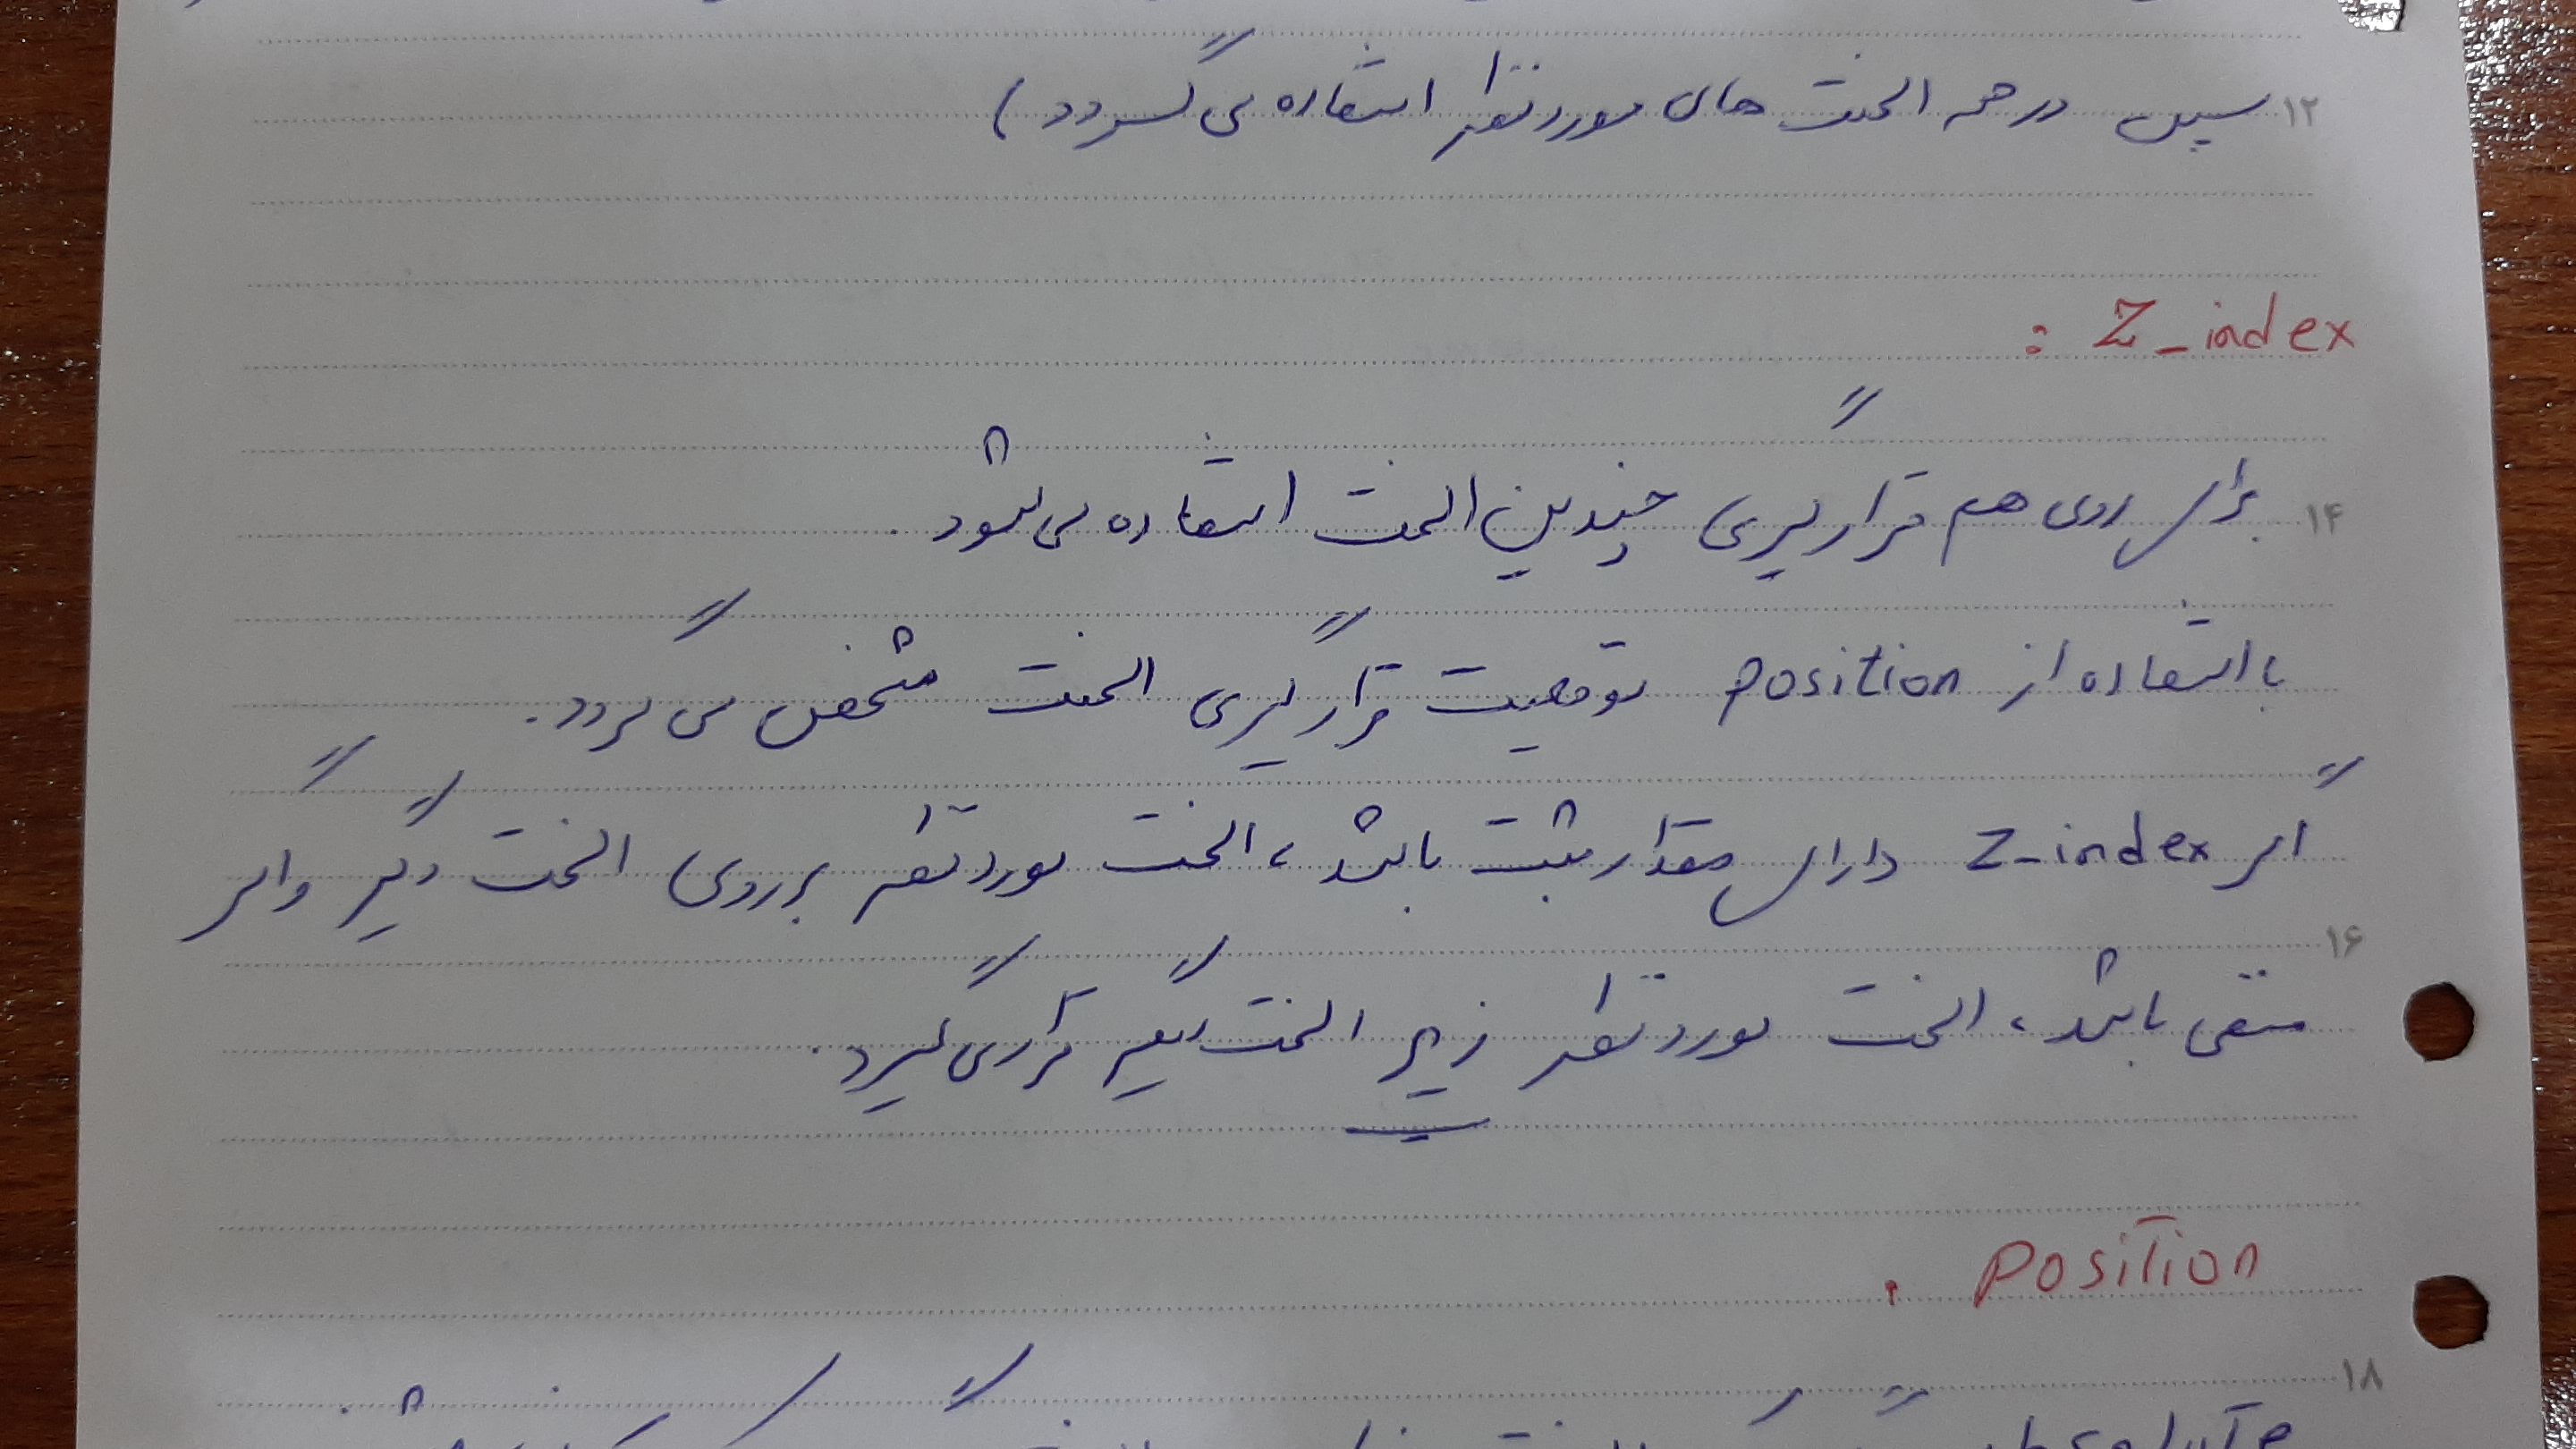 ۱۲ سپس در همه المنت های مورد نظر استفاده می گردد )
Z_index :
۱۴ برای روی هم قرارگیری چندین المنت استفاده می شود .
با استفاده از position موقعیت قرارگیری المنت مشخص می گردد .
اگر z-index دارای مقدار مثبت باشد ، المنت مورد نظر بر روی المنت دیگر و اگر
۱۶
منفی باشد ، المنت مورد نظر زیر المنت دیگر قرار می گیرد .
position :
۱۸